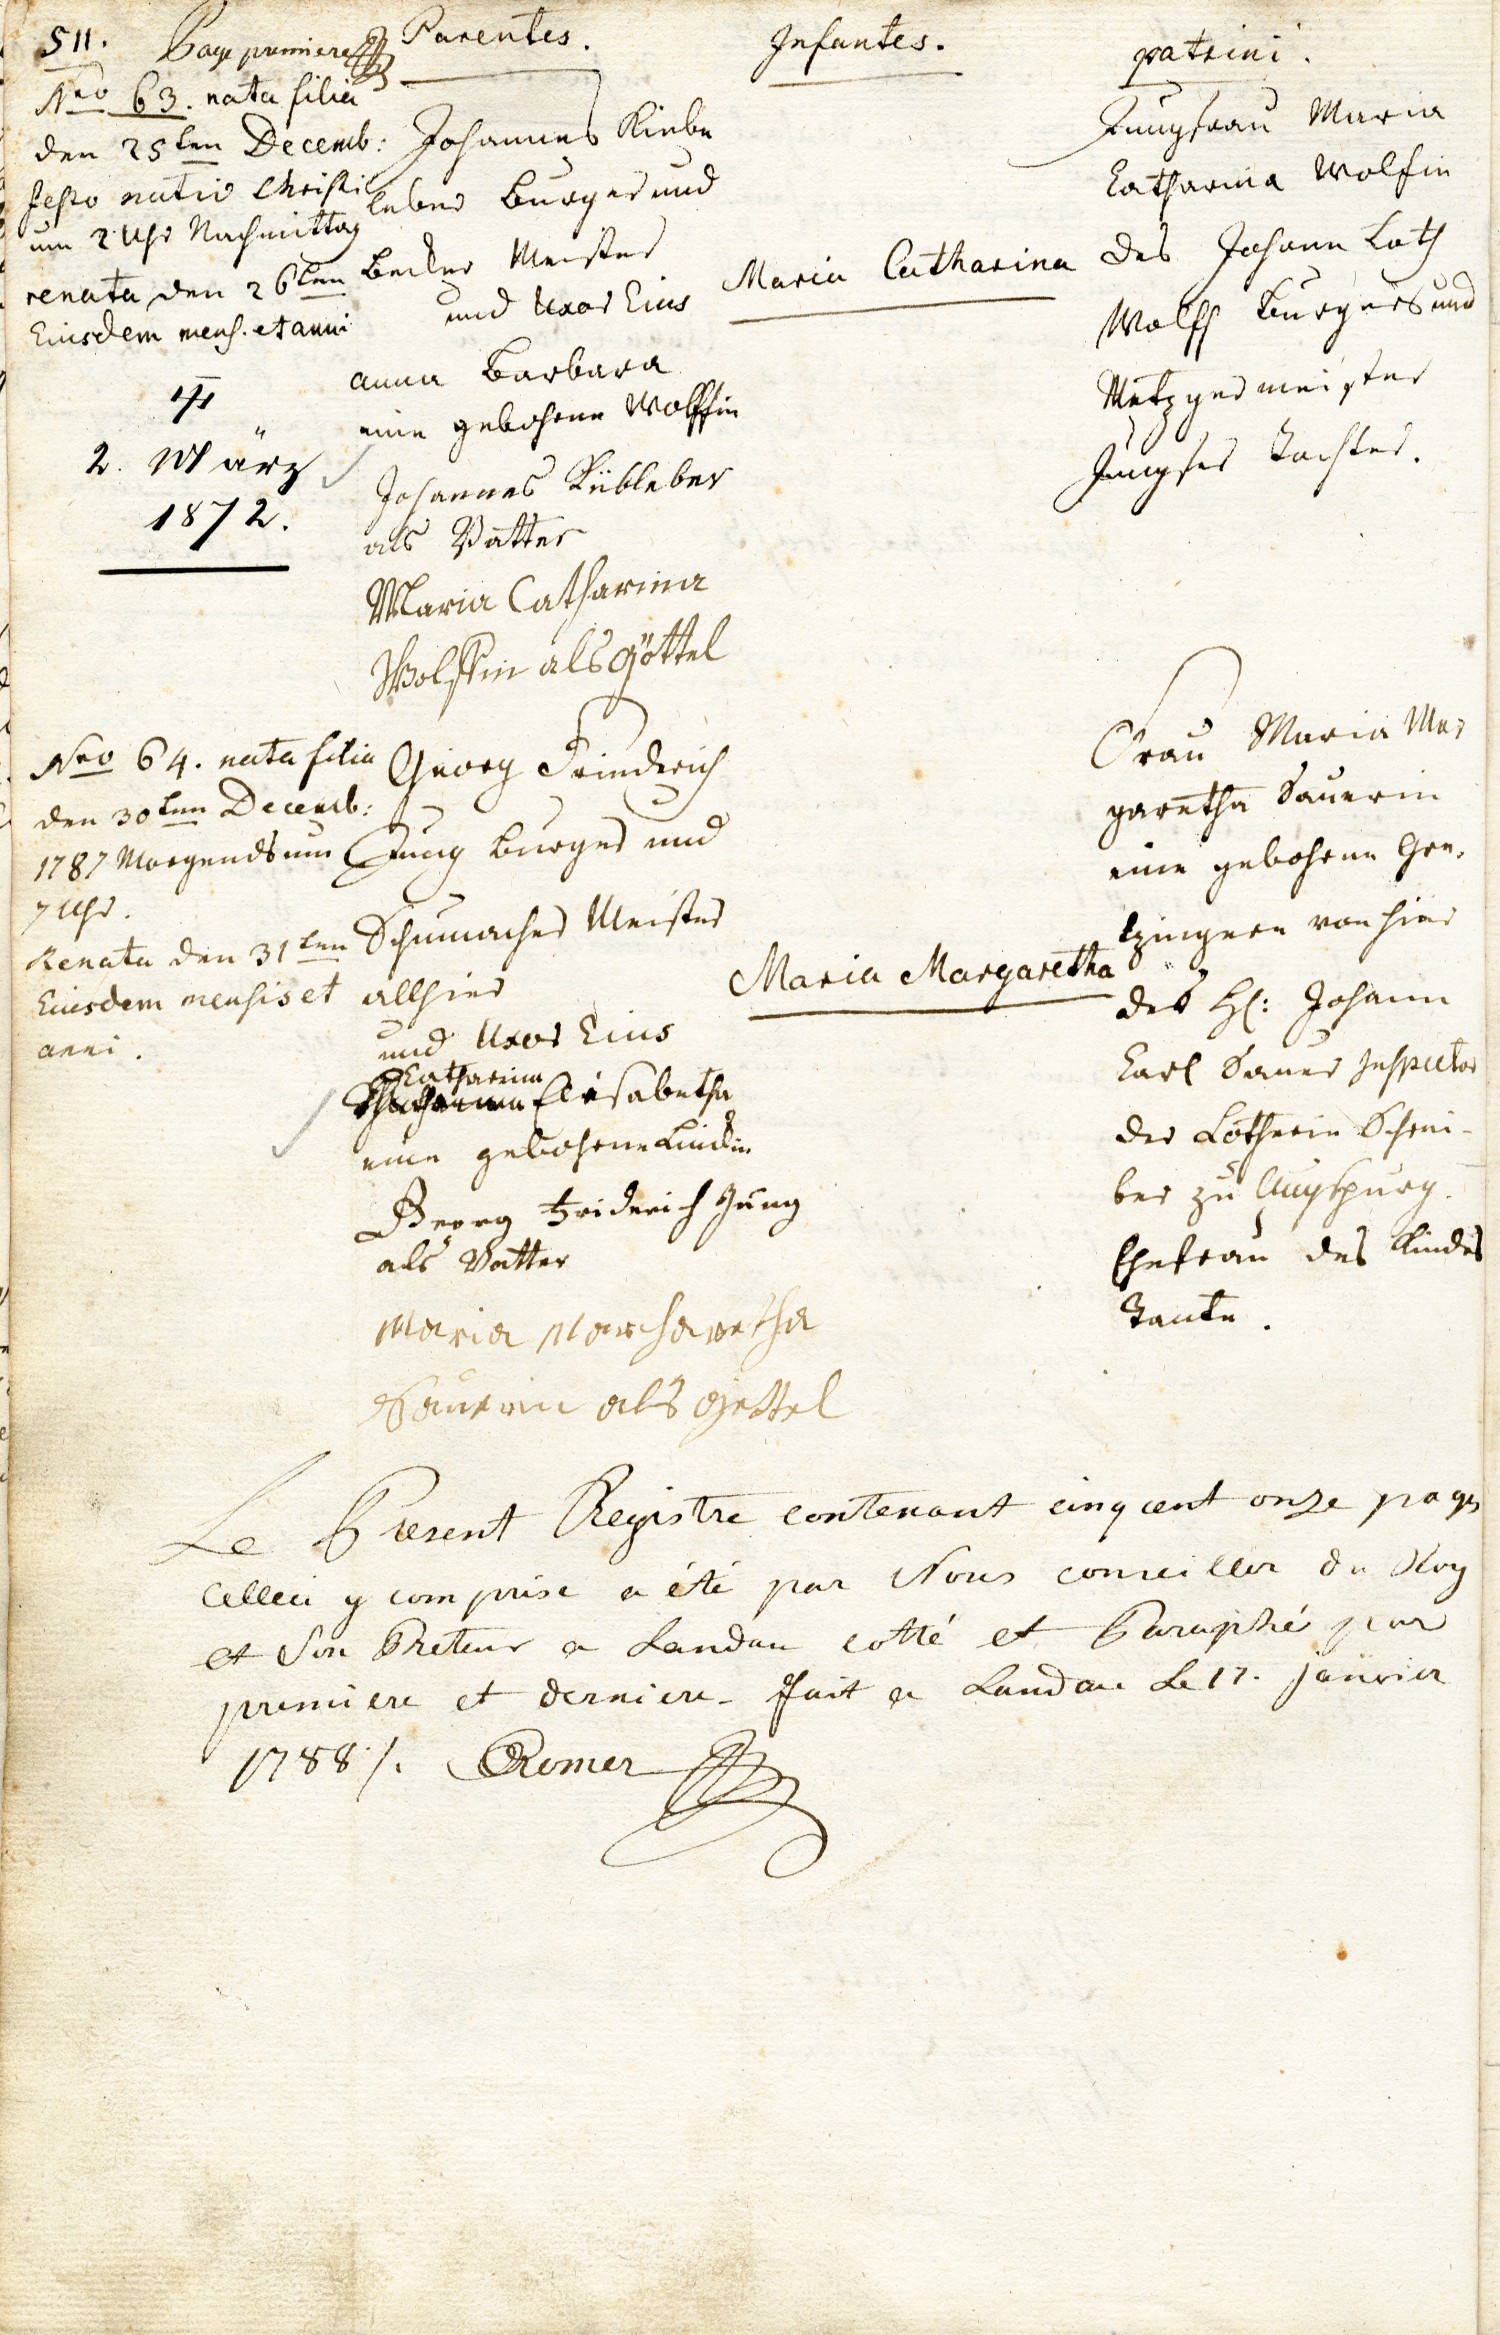 511. Page premiere
Parentes.
Infantes.
patrini.
Nro 63. nata filia
den 25ten Decemb:
festo nativ Christi
um 2 Uhr Nachmittag
renata den 26ten
Eiusdem mens. et anni
2. März
1872.
Johannes Kiebe
leber Burger und
Becker Meister
und Uxor Eius
anna Barbara
eine gebohrne Wolffin
Johannes Kübleber
als Vatter
Maria Catharina
Wolffin als Göttel
Maria Catharina
Jungfrau Maria
Catharina Wolfin
des Johann Loth
Wolff Burgers und
Metzgermeister
Jungfer Tochter.
Nro 64. nata filia
den 30ten Decemb:
1787 Morgends um
7 Uhr.
Renata den 31ten
Eiusdem mensis et
anni.
Georg Friedrich
Jung Burger und
Schumacher Meister
allhier
und Uxor Eius
Catharina
Elisabetha
eine gebohrne Lindin
Georg Friderich Jung
als Vatter
Maria Marcharetha
Sauerin als Gettel
Maria Margaretha
Frau Maria Mar
garetha Sauerin
eine gebohrne
von hier
des H: Johann
Carl Sauer Inspector
der Lotherie Schrei-
ber zu Augspurg.
Ehefrau des Kindes
Tante.
Le Present Registre contenant cinq cent onze pages
Celleci y comprise a été par Nous conseiller du Roy
et Son Preteur a Landau cotté et Paraphé par
premiere et derniere. fait a Landau Le 17. janvier
1788 /. Romer